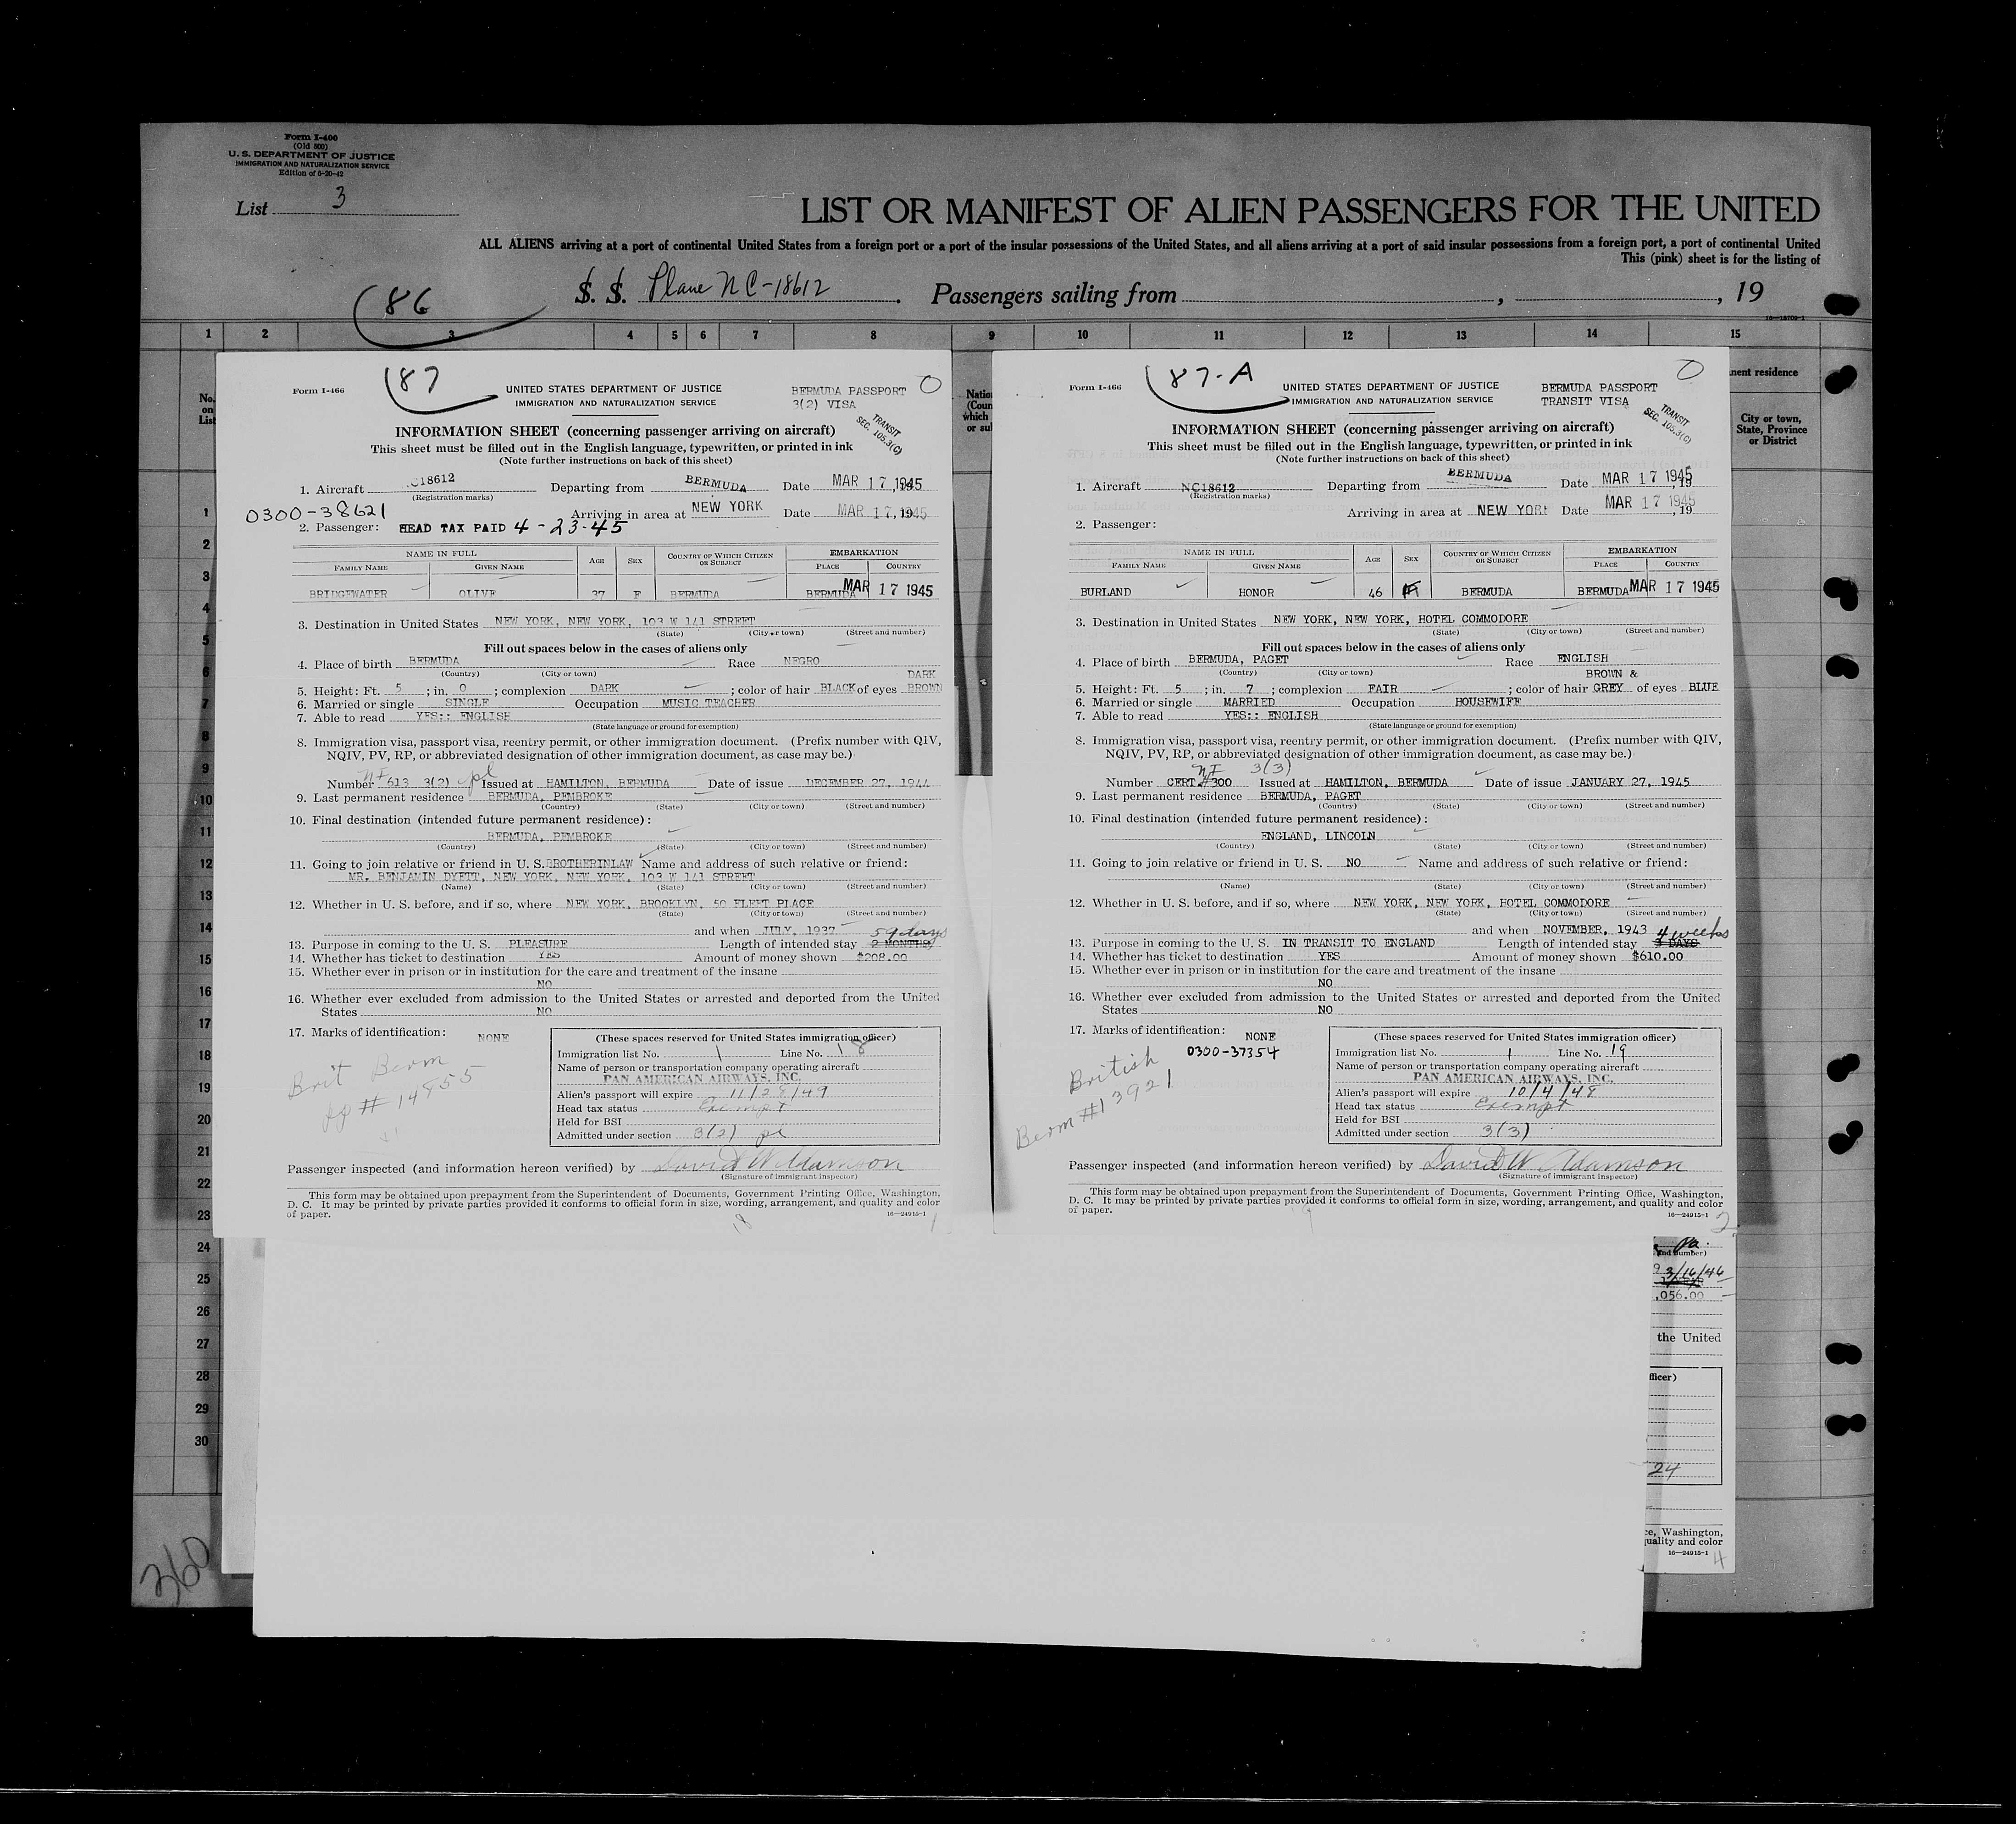 Form I-400
(Old 500)
U. S. DEPARTMENT OF JUSTICE
IMMIGRATION AND NATURALIZATION SERVICE
Edition of 6-20-42
List 3
LIST OR MANIFEST OF ALIEN PASSENGERS FOR THE UNITED
ALL ALIENS arriving at a port of continental United States from a foreign port or a port of the insular possessions of the United States, and all aliens arriving at a port of said insular possessions from a foreign port, a port of continental United
This (pink) sheet is for the listing of
86
S. S. Plane NC-18612. Passengers sailing from , , 19
1 2 3 4 5 6 7 8 9 10 11 12 13 14 15
No. on List
nent residence
City or town, State, Province or District
1
2
3
4
5
6
7
8
9
10
11
12
13
14
15
16
17
18
19
20
21
22
23
24
25
26
27
28
29
30
360
Form I-466
87
UNITED STATES DEPARTMENT OF JUSTICE
IMMIGRATION AND NATURALIZATION SERVICE
BERMUDA PASSPORT
3(2) VISA
0
TRANSIT
SEC. 105.3(C)
INFORMATION SHEET (concerning passenger arriving on aircraft)
This sheet must be filled out in the English language, typewritten, or printed in ink
(Note further instructions on back of this sheet)
1. Aircraft C18612 Departing from BERMUDA Date MAR 17 1945
(Registration marks)
0300-38621
Arriving in area at NEW YORK Date MAR 17, 1945
2. Passenger: HEAD TAX PAID 4-23-45
NAME IN FULL AGE SEX COUNTRY OF WHICH CITIZEN OR SUBJECT EMBARKATION
FAMILY NAME GIVEN NAME PLACE COUNTRY
BRIDGEWATER OLIVE 37 F BERMUDA BERMUDA MAR 17 1945
3. Destination in United States NEW YORK, NEW YORK, 103 W 141 STREET
(State) (City or town) (Street and number)
Fill out spaces below in the cases of aliens only
4. Place of birth BERMUDA Race NEGRO
(Country) (City or town)
DARK
5. Height: Ft. 5 ; in. 0 ; complexion DARK ; color of hair BLACK of eyes BROWN
6. Married or single SINGLE Occupation MUSIC TEACHER
7. Able to read YES:: ENGLISH
(State language or ground for exemption)
8. Immigration visa, passport visa, reentry permit, or other immigration document. (Prefix number with QIV,
NQIV, PV, RP, or abbreviated designation of other immigration document, as case may be.)
Number 613 3(2) Issued at HAMILTON, BERMUDA Date of issue DECEMBER 27, 1944
9. Last permanent residence BERMUDA, PEMBROKE
(Country) (State) (City or town) (Street and number)
10. Final destination (intended future permanent residence):
BERMUDA, PEMBROKE
(Country) (State) (City or town) (Street and number)
11. Going to join relative or friend in U. S. BROTHERINLAW Name and address of such relative or friend:
MR. BENJAMIN DYETT, NEW YORK, NEW YORK, 103 W 141 STREET
(Name) (State) (City or town) (Street and number)
12. Whether in U. S. before, and if so, where NEW YORK, BROOKLYN, 50 FLEET PLACE
(State) (City or town) (Street and number)
and when JULY, 1937 59 days
13. Purpose in coming to the U. S. PLEASURE Length of intended stay 2 MONTHS
14. Whether has ticket to destination YES Amount of money shown $208.00
15. Whether ever in prison or in institution for the care and treatment of the insane
NO
16. Whether ever excluded from admission to the United States or arrested and deported from the United
States NO
17. Marks of identification: NONE
Brit Berm
pp # 14855
(These spaces reserved for United States immigration officer)
Immigration list No. 1 Line No. 18
Name of person or transportation company operating aircraft
PAN AMERICAN AIRWAYS, INC.
Alien's passport will expire 11/28/49
Head tax status Exempt
Held for BSI
Admitted under section 3(2)
Passenger inspected (and information hereon verified) by David W Adamson
(Signature of immigrant inspector)
This form may be obtained upon prepayment from the Superintendent of Documents, Government Printing Office, Washington,
D. C. It may be printed by private parties provided it conforms to official form in size, wording, arrangement, and quality and color
of paper.
16—24915-1
18
1
Form I-466
87-A
UNITED STATES DEPARTMENT OF JUSTICE
IMMIGRATION AND NATURALIZATION SERVICE
BERMUDA PASSPORT
TRANSIT VISA
0
TRANSIT
SEC. 105.3(C)
INFORMATION SHEET (concerning passenger arriving on aircraft)
This sheet must be filled out in the English language, typewritten, or printed in ink
(Note further instructions on back of this sheet)
1. Aircraft NC18612 Departing from BERMUDA Date MAR 17 1945
(Registration marks)
Arriving in area at NEW YORK Date MAR 17 1945, 19
2. Passenger:
NAME IN FULL AGE SEX COUNTRY OF WHICH CITIZEN OR SUBJECT EMBARKATION
FAMILY NAME GIVEN NAME PLACE COUNTRY
BURLAND HONOR 46 BERMUDA BERMUDA MAR 17 1945
3. Destination in United States NEW YORK, NEW YORK, HOTEL COMMODORE
(State) (City or town) (Street and number)
Fill out spaces below in the cases of aliens only
4. Place of birth BERMUDA, PAGET Race ENGLISH
(Country) (City or town)
BROWN &
5. Height: Ft. 5 ; in. 7 ; complexion FAIR ; color of hair GREY of eyes BLUE
6. Married or single MARRIED Occupation HOUSEWIFE
7. Able to read YES:: ENGLISH
(State language or ground for exemption)
8. Immigration visa, passport visa, reentry permit, or other immigration document. (Prefix number with QIV,
NQIV, PV, RP, or abbreviated designation of other immigration document, as case may be.)
NI 3(3)
Number CERT #300 Issued at HAMILTON, BERMUDA Date of issue JANUARY 27, 1945
9. Last permanent residence BERMUDA, PAGET
(Country) (State) (City or town) (Street and number)
10. Final destination (intended future permanent residence):
ENGLAND, LINCOLN
(Country) (State) (City or town) (Street and number)
11. Going to join relative or friend in U. S. NO Name and address of such relative or friend:
(Name) (State) (City or town) (Street and number)
12. Whether in U. S. before, and if so, where NEW YORK, NEW YORK, HOTEL COMMODORE
(State) (City or town) (Street and number)
and when NOVEMBER, 1943 4 weeks
13. Purpose in coming to the U. S. IN TRANSIT TO ENGLAND Length of intended stay DAYS
14. Whether has ticket to destination YES Amount of money shown $610.00
15. Whether ever in prison or in institution for the care and treatment of the insane
NO
16. Whether ever excluded from admission to the United States or arrested and deported from the United
States NO
17. Marks of identification: NONE
0300-37354
British
Berm #13921
(These spaces reserved for United States immigration officer)
Immigration list No. 1 Line No. 19
Name of person or transportation company operating aircraft
PAN AMERICAN AIRWAYS, INC.
Alien's passport will expire 10/4/48
Head tax status Exempt
Held for BSI
Admitted under section 3(3)
Passenger inspected (and information hereon verified) by David W. Adamson
(Signature of immigrant inspector)
This form may be obtained upon prepayment from the Superintendent of Documents, Government Printing Office, Washington,
D. C. It may be printed by private parties provided it conforms to official form in size, wording, arrangement, and quality and color
of paper.
16—24915-1
2
Pa.
and number)
3/16/46
,056.00
the United
fficer)
24
ce, Washington,
quality and color
16—24915-1
4